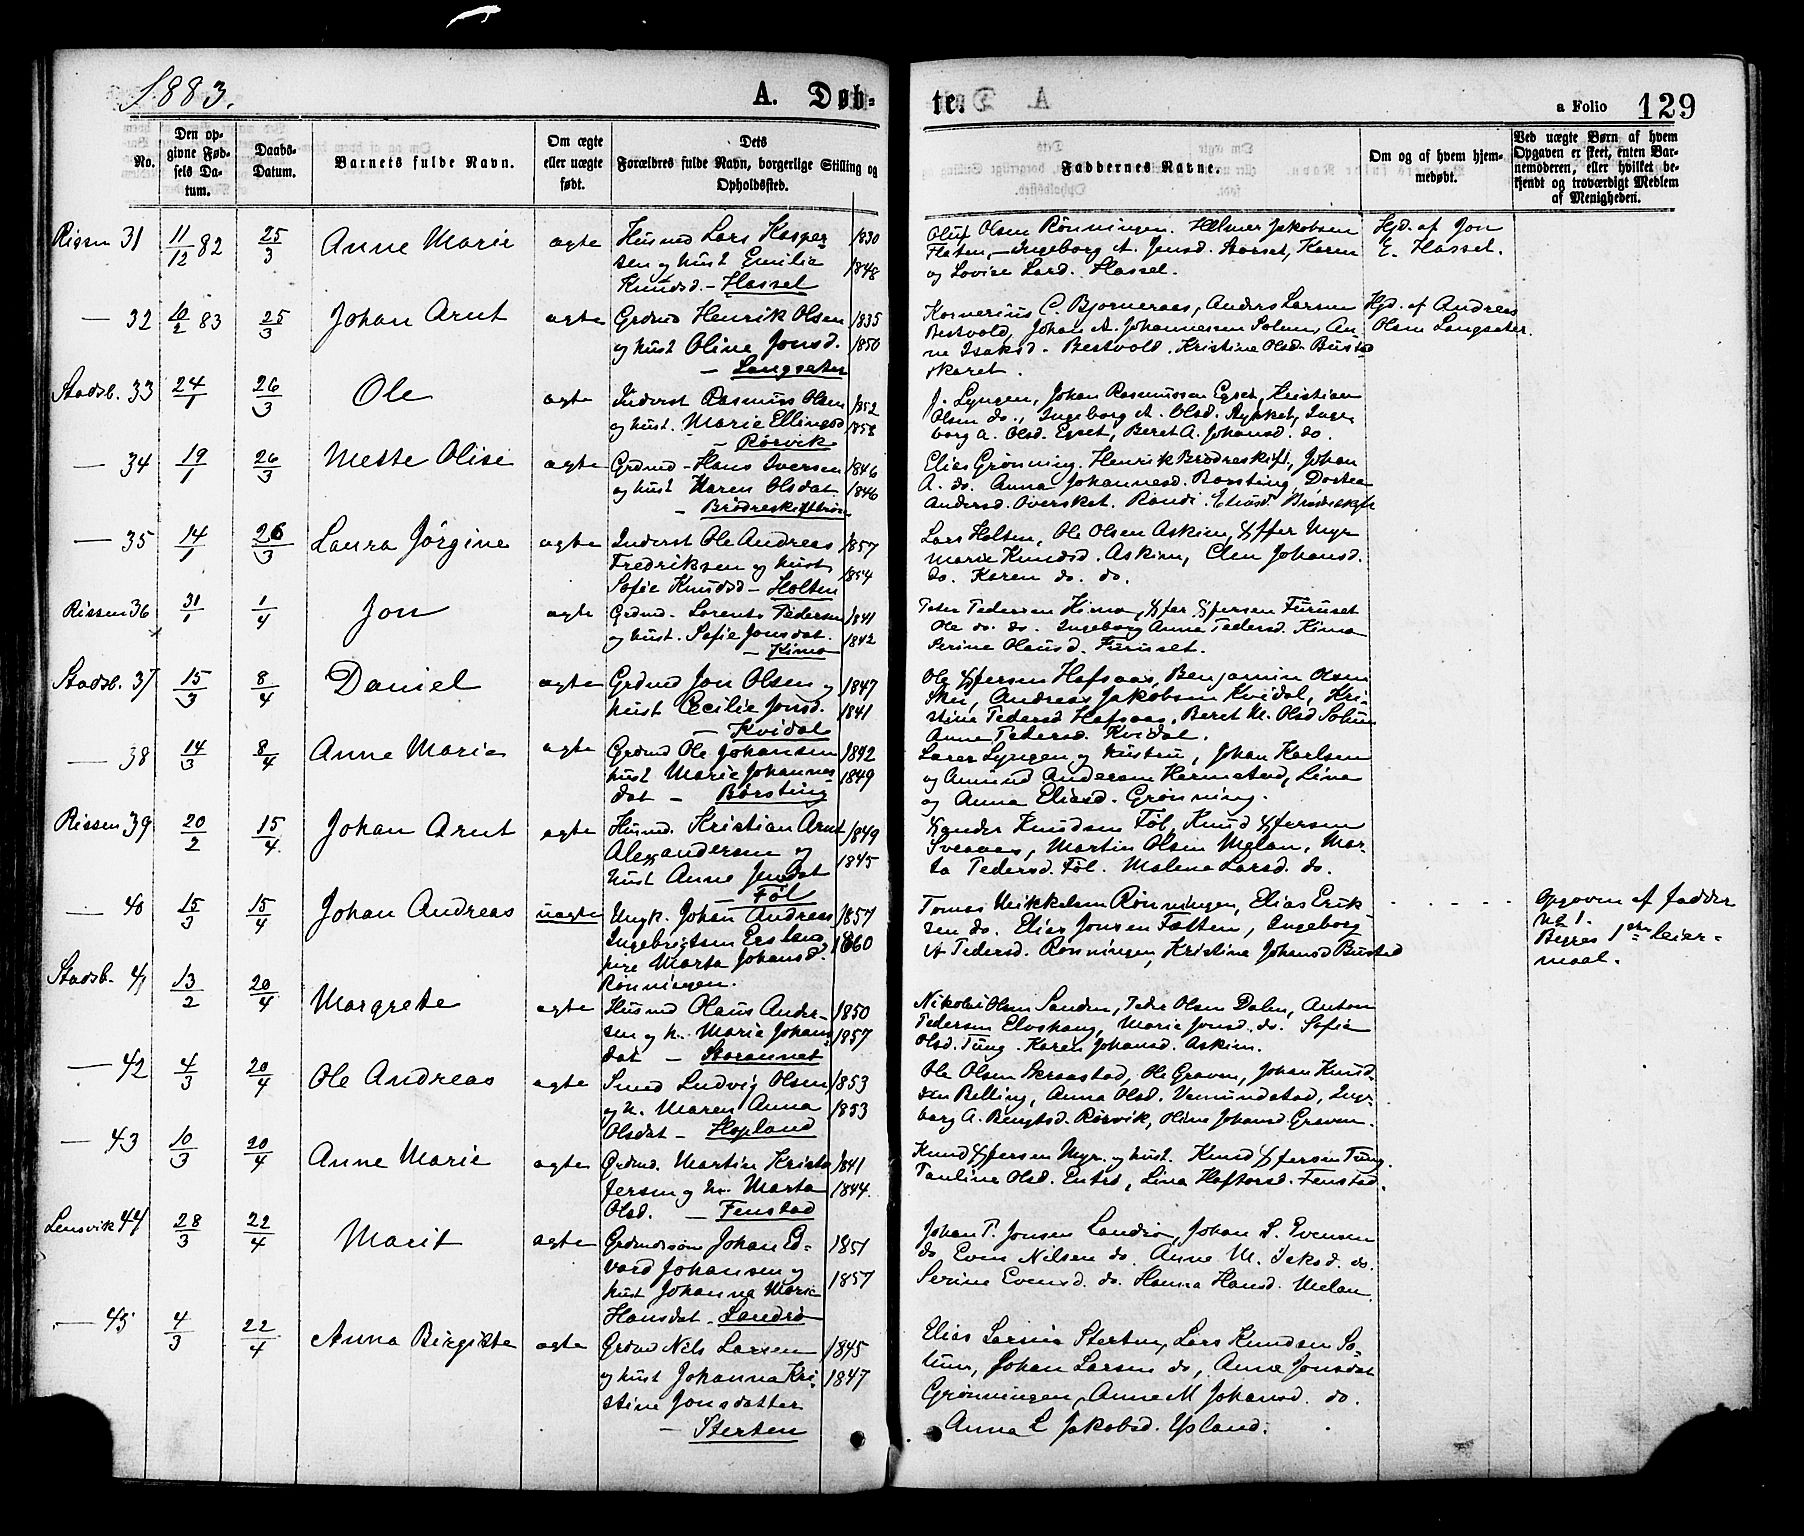 1883.
A. Døb-
te.
a Folio 129
No.
Den op-
givne Fød-
sels Da-
tum.
Daabs-
Datum.
Barnets fulde Navn.
Om ægte
eller uægte
født.
Dets
Forældres fulde Navn, borgerlige Stilling og
Opholdssted.
Faddernes Navne.
Om og af hvem hjem-
medøbt.
Ved uægte Børn af hvem
Opgaven er skeet, enten Bar-
nemoderen, eller hvilket be-
kjendt og troværdigt Medlem
af Menigheden.
Rissen 31 11/12 82 25/3 Anne Marie ægte Husmd Lars Kasper- 1830
sen og hust Emilie 1848
Knudsd. - Hassel
Oluf Olsen Rønningen. Helmer Jakobsen
Flaten, - Ingeborg A. Jensd. Aarset, Karen
og Lovise Larsd. Hassel.
Hjd. af Jon
E. Hassel.
— 32 10/2 83 25/3 Johan Arnt ægte Grdmd Henrik Olsen 1835
og hust Oline Jonsd. 1850
- Langsæter
Kornerius C. Bjørneraas, Anders Larsen
Bestvold, Johan A. Johannessen Solem, An-
ne Isaksd. Bestvold. Kristine Olsd. Bustad
skaret.
Hjd. af Andreas
Olsen Langsæter.
Stadsb. 33 24/1 26/3 Ole ægte Inderst Rasmus Olsen 1852
og hust. Marie Ellingsd 1858
- Rørvik
J. Lyngen, Johan Rasmussen Egset, Kristian
Olsen do., Ingeborg A. Olsd. Rykket, Inge-
borg A. Olsd. Egset, Beret A. Johansd. do.
— 34 19/1 26/3 Mette Olise ægte Grdmd - Hans Oversen 1846
og hust Karen Olsdat 1846
- Brødreskiftrøa
Elias Grønning. Henrik Brødreskift, Johan
A. do. Anna Johannesd. Børsting Dortea
Andersd. Oversket. Randi Eliasd. Brødreskift
— 35 14/1 26/3 Laura Jørgine ægte Inderst Ole Andreas 1857
Fredriksen og hust 1854
Sofie Knudsd - Holten
Lars Holten, Ole Olsen Askim, Effer Myr
Marie Knudsd. Askim, Elen Johansd.
do. Karen do. do.
Rissen 36 31/1 1/4 Jon ægte Grdmd. Lorents Pedersen 1841
og hust. Sofie Jonsdat. 1842
- Kimo
Peter Pedersen Kimo, Effer Effersen Furuset
Ole do. do. Ingeborg Anna Pedersd. Kimo
Serine Olausd. Furuset.
Stadsb. 37 15/3 8/4 Daniel ægte Grdmd Jon Olsen og 1847
hust Cecilie Jonsd. 1841
- Kvidal
Ole Effersen Hafsaas, Benjamin Olsen
Skei, Andreas Jakobsen Kvidal, Kri-
stine Pedersd Hafsaas, Beret M. Olsd Solum
Anne Pedersd. Kvidal.
— 38 14/3 8/4 Anne Marie ægte Grdmd Ole Johansen 1842
hust Marie Johannes- 1849
dat - Børsting
Lærer Lyngen og hustru, Johan Karlsen
og Amund Andersen Hermstad, Lina
og Anna Eliasd. Grønning.
Rissen 39 20/2 15/4 Johan Arnt ægte Husmd. Kristian Arnt 1849
Alexandersen og 1845
hust Anne Jensdat
- Føl
Xander Knudsen Føl, Knud Effersen
Sveaas, Martin Olsen Melan, Mar-
ta Pedersd. Føl. Malena Larsd. do.
— 40 15/3 15/4 Johan Andreas uægte Ungk. Johan Andreas 1857
Ingebrigtsen Ersland, 1860
pige Marta Johansd.
Rønningen.
Tomas Mikkelsen Rønningen, Elias Erik-
sen do. Elias Jonsen Fætten, Ingeborg
A Pedersd. Rønningen, Kristine Johansd Bustad
Opgaven af fadder
No 1.
Begges 1ste leier-
maal.
Stadsb. 41 13/2 20/4 Margrete ægte Husmd Olaus Ander- 1850
sen og h. Marie Johans- 1857
dat - Storannet
Nikolai Olsen Sanden, Peder Olsen Dalen, Anton
Pedersen Elvehaug, Marie Jonsd. do. Sofie
Olsd. Tung. Karen Johansd. Askim.
— 42 4/3 20/4 Ole Andreas ægte Smed Ludvig Olsen 1853
og h. Maren Anna 1853
Olsdat - Hopland
Ole Olsen Skraastad, Ole Graven, Johan Knud-
sen Belling, Anna Olsd. Vemundstad, Inge-
borg A. Bengtsd. Rørvik, Oline Johansd Graven.
— 43 10/3 20/4 Anne Marie ægte Grdmd. Martin Kristo- 1841
fersen og h. Marta 1844.
Olsd. - Fenstad
Knud Effersen Myr og hust. Knud Effersen Tung.
Pauline Olsd. Entrø, Lina Haftorsd. Fenstad.
Lensvik 44 28/3 22/4 Marit ægte Grdmdssøn Johan Ed- 1851
vard Johansen og 1857
hust Johanna Marie
Hansdat - Landrø
Johan P. Jonsen Landrø, Johan L. Evensen
do Even Nilsen do Anne M. Isaksd. do.
Serine Evensd. do. Hanna Hansd. Melan.
— 45 4/3 22/4 Anna Birgitte ægte Grdmd Nels Larsen 1845
og hust Johanna Kri- 1847
stine Jonsdatter
- Sterten
Elias Larsen Sterten, Lars Knudsen So-
lum, Johan Larsen do, Anne Jonsdat
Grønningen, Anne M Johansd. do.
Anna E Jakobsd. Opland.